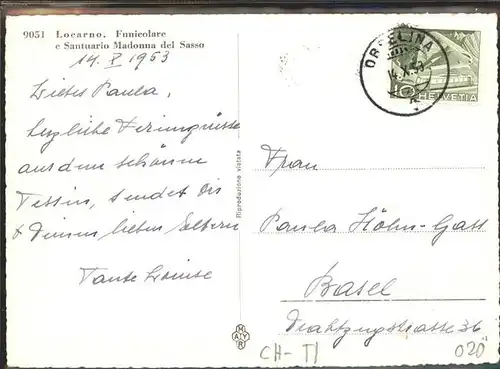 9051 Locarno. Funicolare
e Santuario Madonna del Sasso
14. X 1953
Liebes Paula,
herzliche Feriengrüsse
aus dem schönen
Tessin, sendet Dir
& Deinen lieben Eltern
Tante Louise
Riproduzione vietata
MAYR
ORSELINA
14.X.53
HELVETIA
Frau
Paula Höhn-Gass
Basel
Drahtzugstrasse 36
CH-TI
020